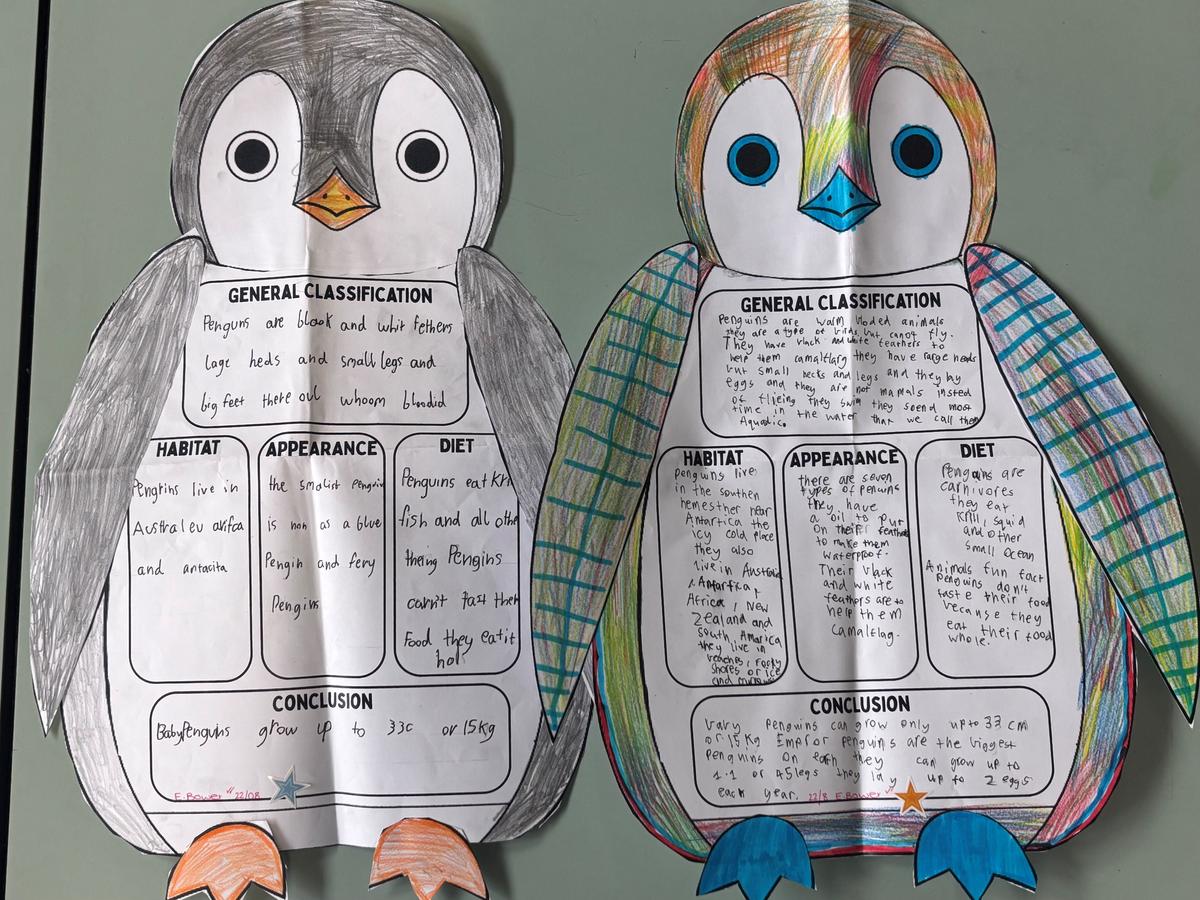 GENERAL CLASSIFICATION
Penguns are black and whit fethers
lage heds and small legs and
big feet there oul whoom bloodid
HABITAT
Pengtins live in
Australeu arifca
and antasita
APPEARANCE
the smolist penguin
is non as a blue
Pengin and fery
Pengins
DIET
Penguns eat kril
fish and all othe
theing Pengins
carn't tast ther
Food they eat it
hol
CONCLUSION
Baby Penguns grow up to 33c or 15kg
E.Bower 22/08
GENERAL CLASSIFICATION
Penguins are warm bloded animals
they are a type of birds but canot fly.
They have vlack and white feathers to
help them camaltlarg they have rarge heads
but small necks and legs and they lay
eggs and they are not mamals insted
of flieing they swim they spend most
time in the water that we call them
Aquadic.
HABITAT
Penguins live
in the southen
hemesther near
Antartica the
icy cold place
they also
live in Austraia
, Antartica,
Africa, New
Zealand and
South, Amarica
they live in
veaches, rocky
shores or ice
and
APPEARANCE
there are seven
types of penguins
they have
a oil to put
on theirr feathers
to make them
waterproof.
Their vlack
and white
feathers are to
help them
camaltlag.
DIET
Penguins are
carnivores
they eat
krill, squid
and other
small ocean
Animals fun fact
Penguins don't
taste their food
vecause they
eat their food
whole.
CONCLUSION
Vavy Penguins can grow only up to 33 cm
or 15 kg Emperor penguins are the biggest
Penguins on eath they can grow up to
1.1 or 45 legs they lay up to 2 eggs
each year. 22/8 E.Bower